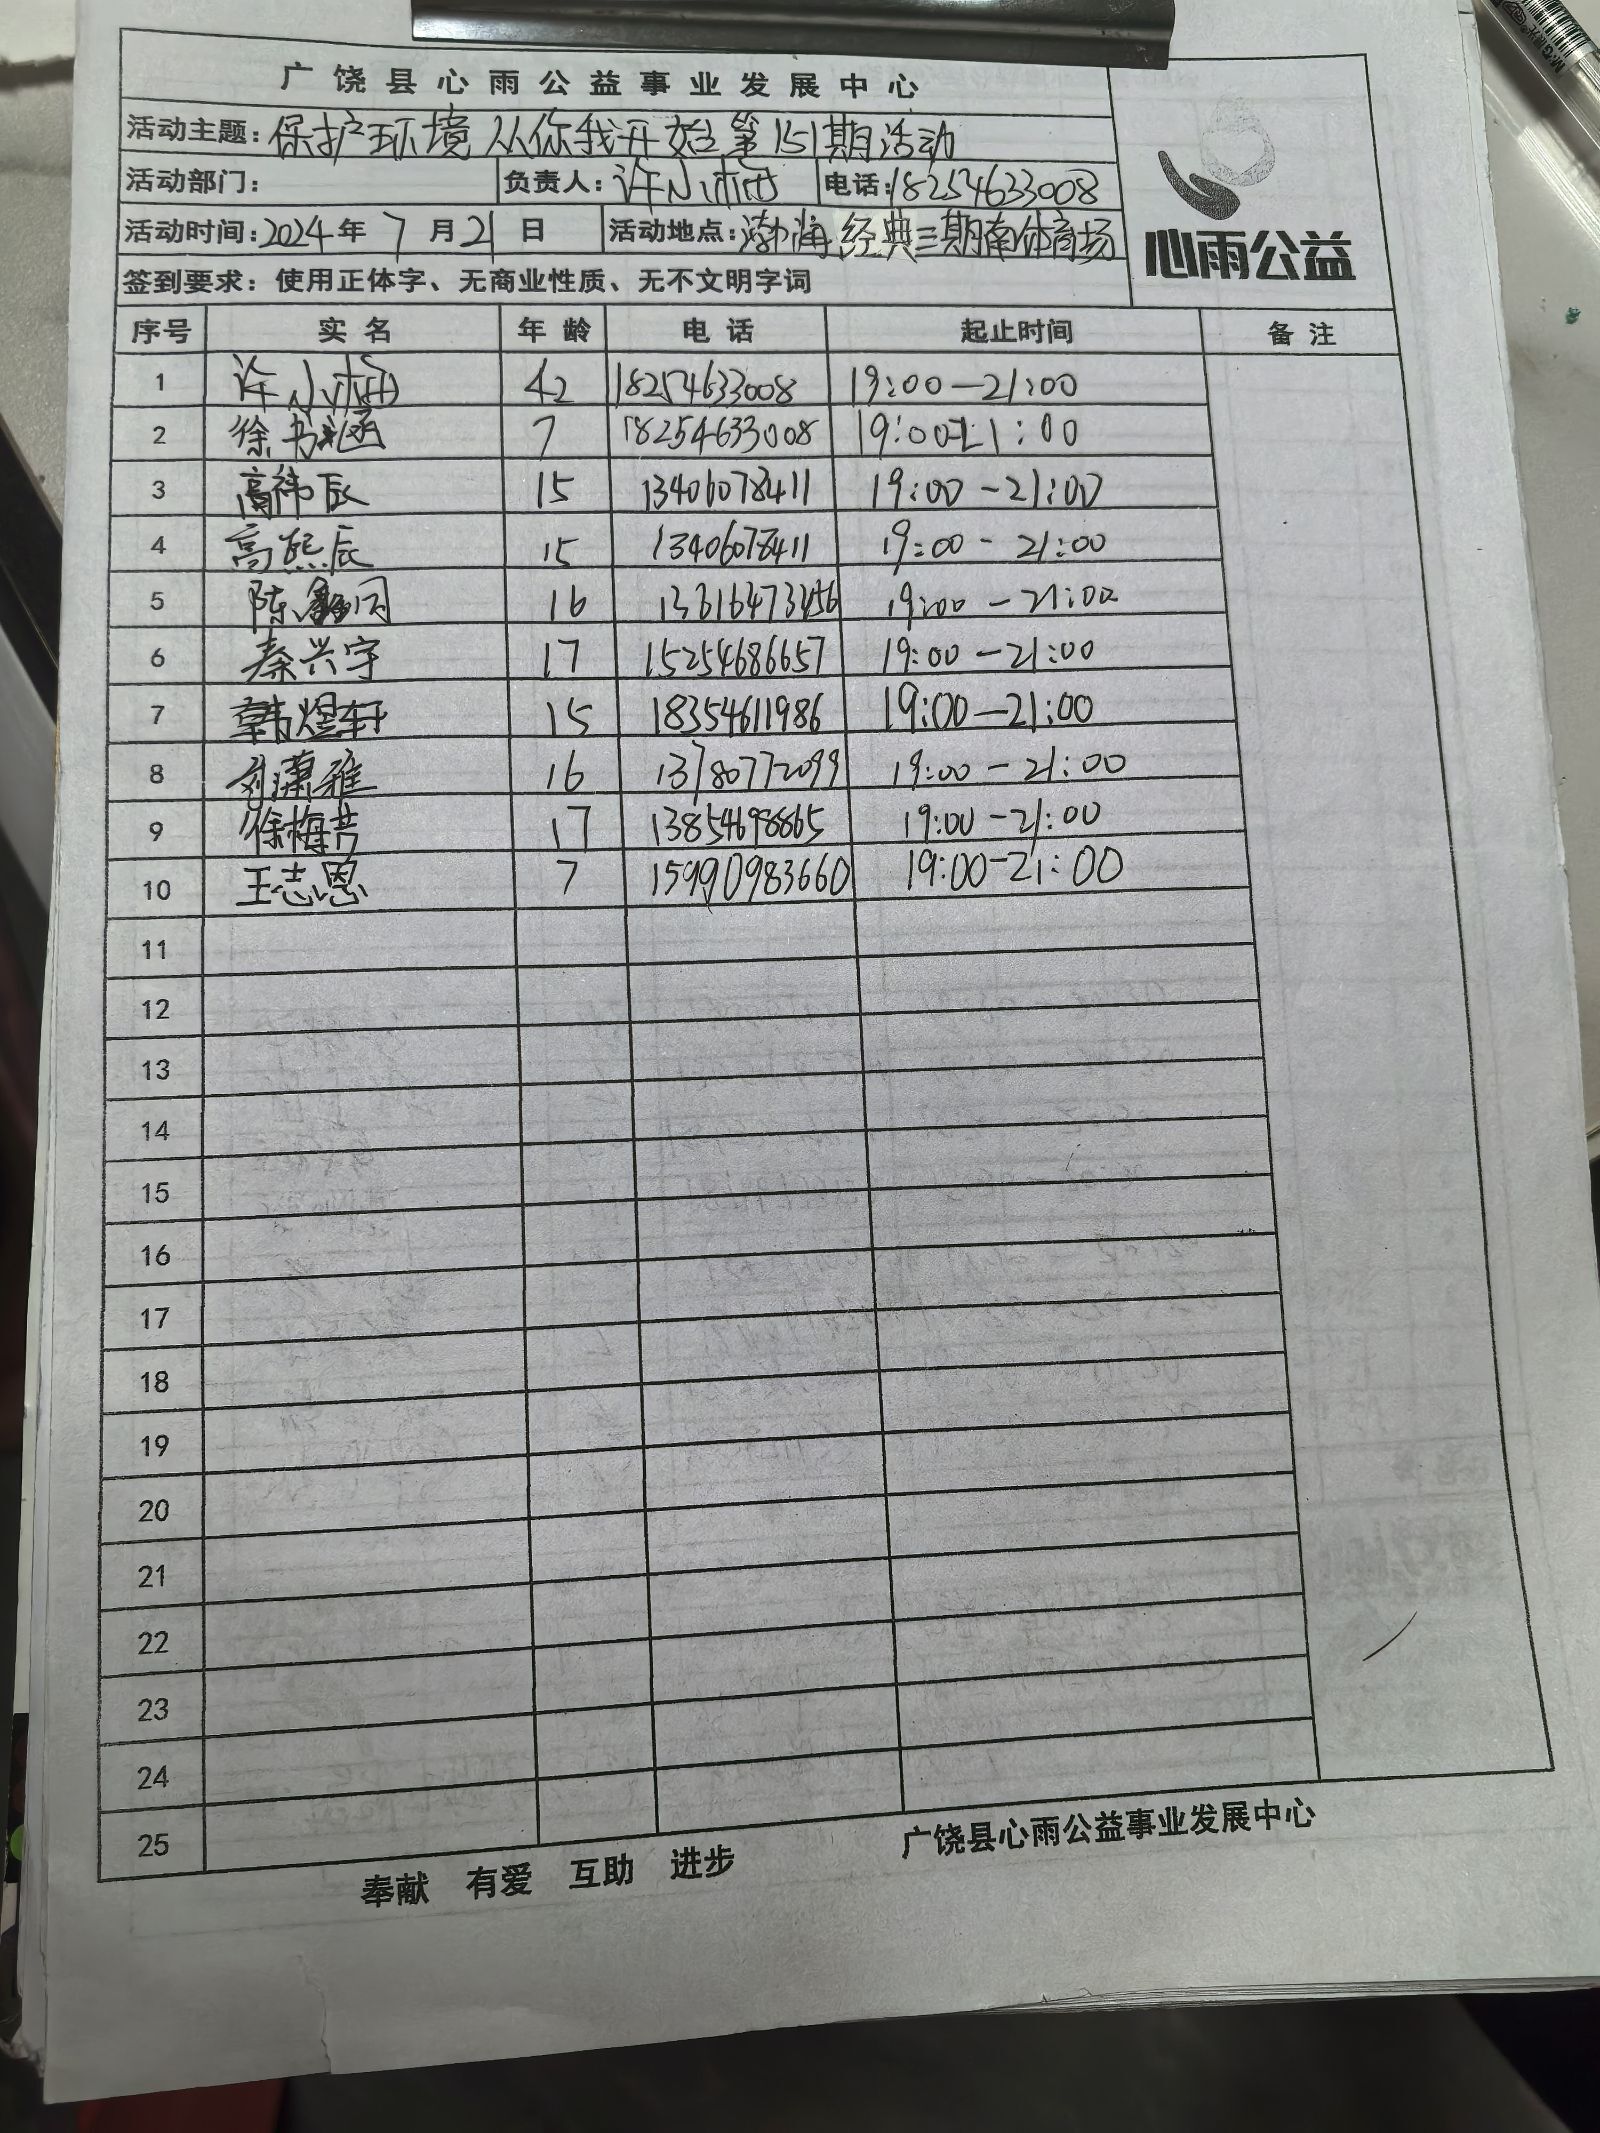 广饶县心雨公益事业发展中心
活动主题：保护环境从你我开始第151期活动
活动部门： 负责人：许小梅 电话：18254633008
活动时间：2024年7月21日 活动地点：渤海经典三期南体育场
心雨公益
签到要求：使用正体字、无商业性质、无不文明字词
序号 实名 年龄 电话 起止时间 备注
1 许小梅 42 18254633008 19:00—21:00
2 徐书涵 7 18254633008 19:00-21:00
3 高祎辰 15 13406078411 19:00-21:00
4 高熙辰 15 13406078411 19:00-21:00
5 陈 16 13616473456 19:00-21:00
6 秦兴宇 17 15254686657 19:00-21:00
7 韩煜轩 15 18354611986 19:00—21:00
8 刘潇雅 16 13780772099 19:00-21:00
9 徐梅芳 17 13854698865 19:00-21:00
10 王志恩 7 15990983660 19:00-21:00
11
12
13
14
15
16
17
18
19
20
21
22
23
24
25
奉献 有爱 互助 进步 广饶县心雨公益事业发展中心